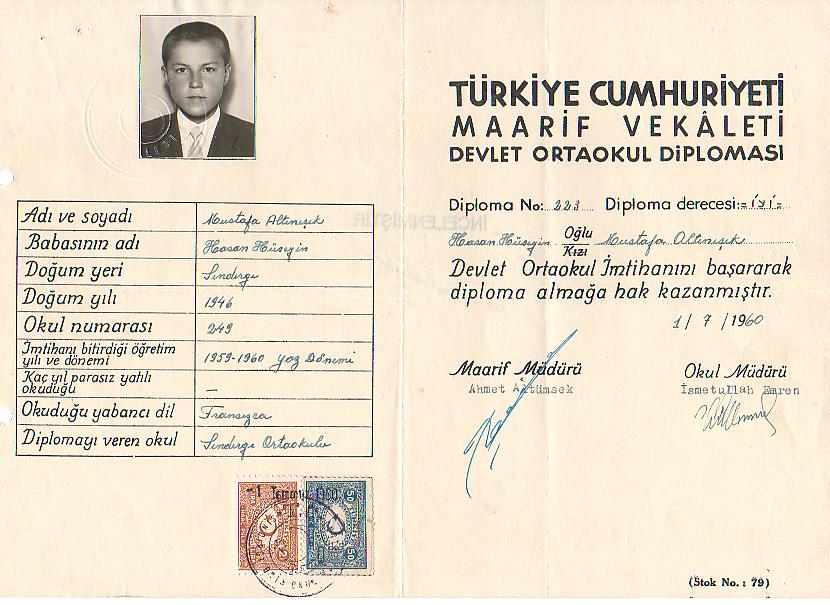 Adı ve soyadı Mustafa Altınışık
Babasının adı Hasan Hüseyin
Doğum yeri Sındırgı
Doğum yılı 1946
Okul numarası 249
İmtihanı bitirdiği öğretim yılı ve dönemi 1959-1960 yaz Dönemi
Kaç yıl parasız yatılı okuduğu —
Okuduğu yabancı dil Fransızca
Diplomayı veren okul Sındırgı Ortaokulu
-1 Temmuz 1960
TÜRKİYE CUMHURİYETİ
MAARİF VEKÂLETİ
DEVLET ORTAOKUL DİPLOMASI
Diploma No: 223 Diploma derecesi:=İyi=
Hasan Hüseyin Oğlu Kızı Mustafa Altınışık
Devlet Ortaokul İmtihanını başararak
diploma almağa hak kazanmıştır.
1/7/1960
Maarif Müdürü Okul Müdürü
Ahmet Altümsek İsmetullah Emren
İNCELENMİŞTİR
(Stok No.: 79)